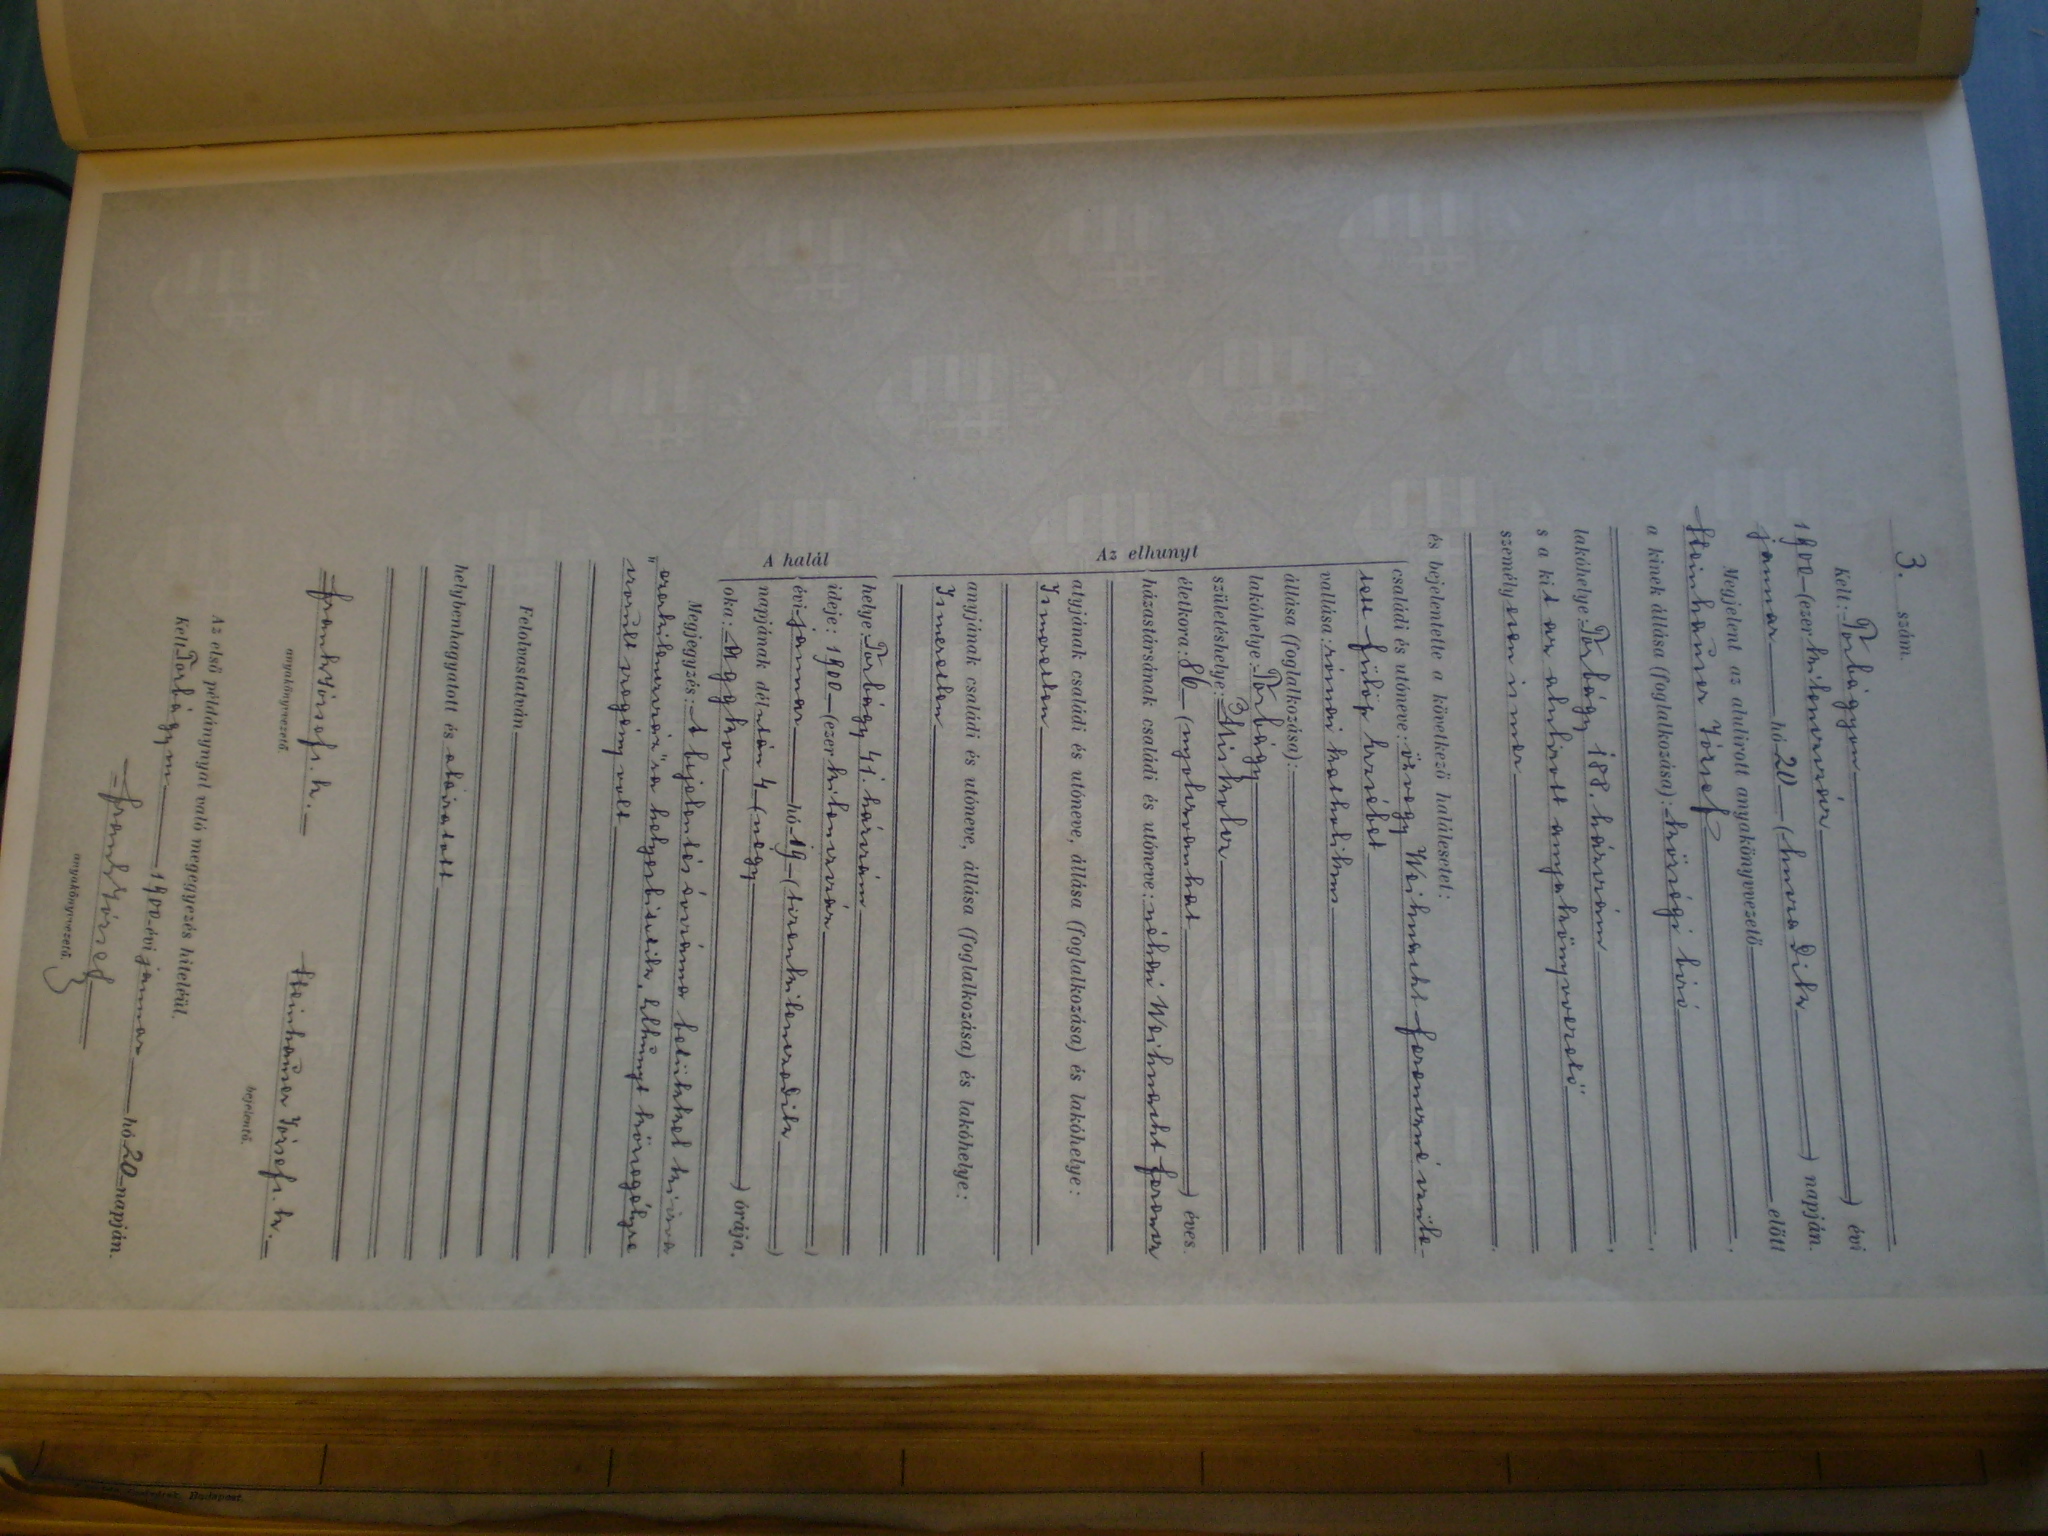 3. szám.
Kelt: Torbágyon ) évi
1900 (ezerkilenczszáz ) napján.
januar hó 20 (huszadik ) napján.
Megjelent az alulirott anyakönyvvezető előtt
Steinhauser József,
a kinek állása (foglalkozása): községi biró,
lakóhelye: Torbágy 188. házszám,
s a kit az alulirott anyakönyvvezető
személyesen ismer.
és bejelentette a következő halálesetet:
Az elhunyt
családi és utóneve: özvegy Weihnacht Ferenczné szüle-
tett Fülöp Erzsébet
vallása: római katholikus
állása (foglalkozása):
lakóhelye: Torbágy
születéshelye:
életkora: 86 (nyolczvanhat ) éves.
házastársának családi és utóneve: néhai Weihnacht Ferencz
atyjának családi és utóneve, állása (foglalkozása) és lakóhelye:
Ismeretlen
anyjának családi és utóneve, állása (foglalkozása) és lakóhelye:
Ismeretlen
A halál
helye: Torbágy 41. házszám
ideje: 1900 (ezerkilenczszáz )
évi januar hó 19 (tizenkilenczedik )
napjának délután 4 (négy ) órája.
oka: Aggkor
Megjegyzés: A bejelentés évszáma betükkel kiirva
"ezerkilenczszáz" a helyesbités, elhunyt
szegény volt
Felolvastatván
helybenhagyatott és aláiratott
Frank József s. k. Steinhauser József s. k.
anyakönyvvezető. bejelentő.
Az első példánynyal való megegyezés hiteléül.
Kelt Torbágyon 1900 évi januar hó 20 napján.
Frank József
anyakönyvvezető.
Budapest.